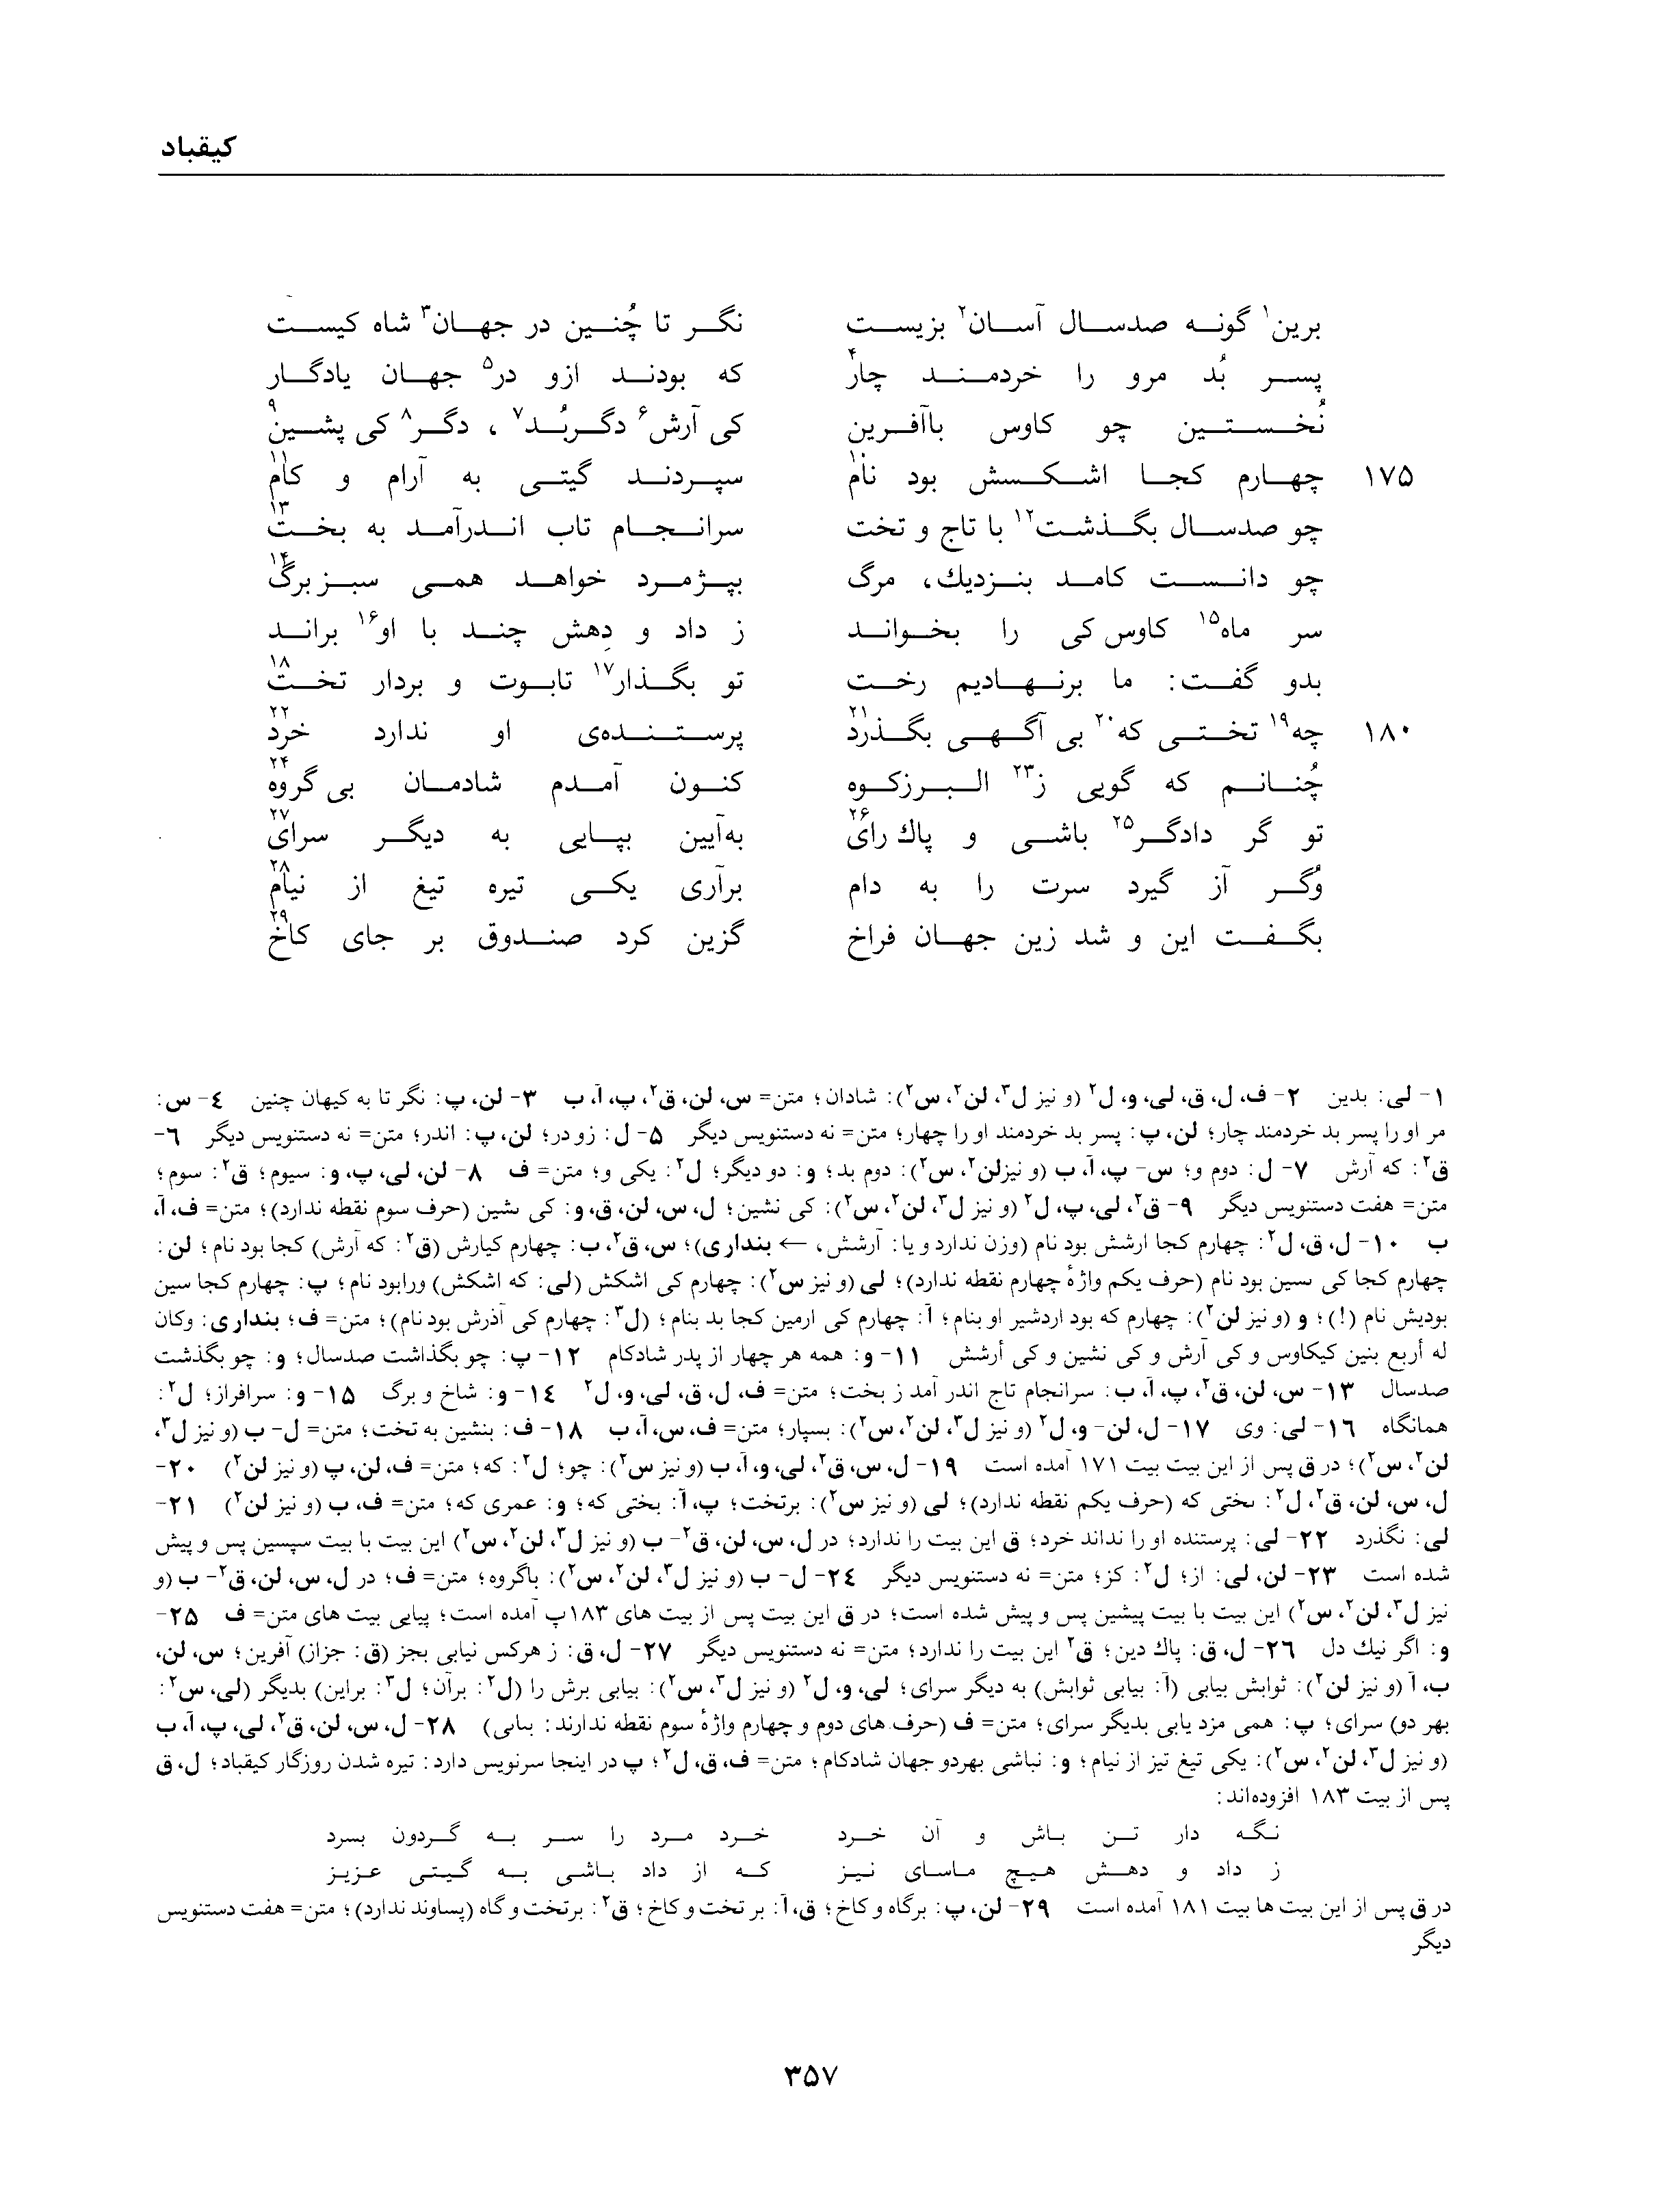 کیقباد
برین۱ گونه صدسال آسان۲ بزیست نگر تا چُنین در جهان۳ شاه کیست
پسر بُد مرو را خردمند چار۴ که بودند ازو در۵ جهان یادگار
نُخستین چو کاوس باآفرین کی آرش۶ دگربُد۷، دگر۸ کی پشین۹
۱۷۵ چهارم کجا اشکسش بود نام۱۰ سپردند گیتی به آرام و کام۱۱
چو صدسال بگذشت۱۲ با تاج و تخت سرانجام تاب اندرآمد به بخت۱۳
چو دانست کامد بنزدیك، مرگ بپژمرد خواهد همی سبزبرگ۱۴
سر ماه۱۵ کاوس کی را بخواند ز داد و دِهش چند با او۱۶ براند
بدو گفت: ما برنهادیم رخت تو بگذار۱۷ تابوت و بردار تخت۱۸
۱۸۰ چه۱۹ تختی که۲۰ بی آگهی بگذرد۲۱ پرستنده‌ی او ندارد خرد۲۲
چُنانم که گویی ز۲۳ البرزکوه کنون آمدم شادمان بی گروه۲۴
تو گر دادگر۲۵ باشی و پاك رای۲۶ به‌آیین بپایی به دیگر سرای۲۷
وُگر آز گیرد سرت را به دام برآری یکی تیره تیغ از نیام۲۸
بگفت این و شد زین جهان فراخ گزین کرد صندوق بر جای کاخ۲۹
۱- لی: بدین ۲- ف، ل، ق، لی، و، ل۲ (و نیز ل۳، لن۲، س۲): شادان؛ متن= س، لن، ق۲، پ، آ، ب ۳- لن، پ: نگر تا به کیهان چنین ۴- س:
مر او را پسر بد خردمند چار؛ لن، پ: پسر بد خردمند او را چهار؛ متن= نه دستنویس دیگر ۵- ل: زو در؛ لن، پ: اندر؛ متن= نه دستنویس دیگر ۶-
ق۲: که آرش ۷- ل: دوم و؛ س- پ، آ، ب (و نیزلن۲، س۲): دوم بد؛ و: دو دیگر؛ ل۲: یکی و؛ متن= ف ۸- لن، لی، پ، و: سیوم؛ ق۲: سوم؛
متن= هفت دستنویس دیگر ۹- ق۲، لی، پ، ل۲ (و نیز ل۳، لن۲، س۲): کی نشین؛ ل، س، لن، ق، و: کی ىشین (حرف سوم نقطه ندارد)؛ متن= ف، آ،
ب ۱۰- ل، ق، ل۲: چهارم کجا ارشش بود نام (وزن ندارد و یا: آرشش، ← بنداری)؛ س، ق۲، ب: چهارم کیارش (ق۲: که آرش) کجا بود نام؛ لن:
چهارم کجا کی ىسین بود نام (حرف یکم واژۀ چهارم نقطه ندارد)؛ لی (و نیز س۲): چهارم کی اشکش (لی: که اشکش) ورابود نام؛ پ: چهارم کجا سین
بودیش نام (!)؛ و (و نیز لن۲): چهارم که بود اردشیر او بنام؛ آ: چهارم کی ارمین کجا بد بنام؛ (ل۳: چهارم کی آذرش بود نام)؛ متن= ف؛ بنداری: وکان
له أربع بنین کیکاوس و کی آرش و کی نشین و کی أرشش ۱۱- و: همه هر چهار از پدر شادکام ۱۲- پ: چو بگذاشت صدسال؛ و: چو بگذشت
صدسال ۱۳- س، لن، ق۲، پ، آ، ب: سرانجام تاج اندر آمد ز بخت؛ متن= ف، ل، ق، لی، و، ل۲ ۱۴- و: شاخ و برگ ۱۵- و: سرافراز؛ ل۲:
همانگاه ۱۶- لی: وی ۱۷- ل، لن- و، ل۲ (و نیز ل۳، لن۲، س۲): بسپار؛ متن= ف، س، آ، ب ۱۸- ف: بنشین به تخت؛ متن= ل- ب (و نیز ل۳،
لن۲، س۲)؛ در ق پس از این بیت بیت ۱۷۱ آمده است ۱۹- ل، س، ق۲، لی، و، آ، ب (و نیز س۲): چو؛ ل۲: که؛ متن= ف، لن، پ (و نیز لن۲) ۲۰-
ل، س، لن، ق۲، ل۲: ىختی که (حرف یکم نقطه ندارد)؛ لی (و نیز س۲): برتخت؛ پ، آ: بختی که؛ و: عمری که؛ متن= ف، ب (و نیز لن۲) ۲۱-
لی: نگذرد ۲۲- لی: پرستنده او را نداند خرد؛ ق این بیت را ندارد؛ در ل، س، لن، ق۲- ب (و نیز ل۳، لن۲، س۲) این بیت با بیت سپسین پس و پیش
شده است ۲۳- لن، لی: از؛ ل۲: کز؛ متن= نه دستنویس دیگر ۲۴- ل- ب (و نیز ل۳، لن۲، س۲): باگروه؛ متن= ف؛ در ل، س، لن، ق۲- ب (و
نیز ل۳، لن۲، س۲) این بیت با بیت پیشین پس و پیش شده است؛ در ق این بیت پس از بیت های ۱۸۳پ آمده است؛ پیایی بیت های متن= ف ۲۵-
و: اگر نیك دل ۲۶- ل، ق: پاك دین؛ ق۲ این بیت را ندارد؛ متن= نه دستنویس دیگر ۲۷- ل، ق: ز هرکس نیابی بجز (ق: جزاز) آفرین؛ س، لن،
ب، آ (و نیز لن۲): ثوابش بیابی (آ: بیابی ثوابش) به دیگر سرای؛ لی، و، ل۲ (و نیز ل۳، س۲): بیابی برش را (ل۲: برآن؛ ل۳: براین) بدیگر (لی، س۲:
بهر دو) سرای؛ پ: همی مزد یابی بدیگر سرای؛ متن= ف (حرف های دوم و چهارم واژۀ سوم نقطه ندارند: ىىاىی) ۲۸- ل، س، لن، ق۲، لی، پ، آ، ب
(و نیز ل۳، لن۲، س۲): یکی تیغ تیز از نیام؛ و: نباشی بهردو جهان شادکام؛ متن= ف، ق، ل۲؛ پ در اینجا سرنویس دارد: تیره شدن روزگار کیقباد؛ ل، ق
پس از بیت ۱۸۳ افزوده‌اند:
نگه دار تن باش و آن خرد خرد مرد را سر به گردون بسرد
ز داد و دهش هیچ ماسای نیز که از داد باشی به گیتی عزیز
در ق پس از این بیت ها بیت ۱۸۱ آمده است ۲۹- لن، پ: برگاه و کاخ؛ ق، آ: بر تخت و کاخ؛ ق۲: برتخت و گاه (پساوند ندارد)؛ متن= هفت دستنویس
دیگر
۳۵۷